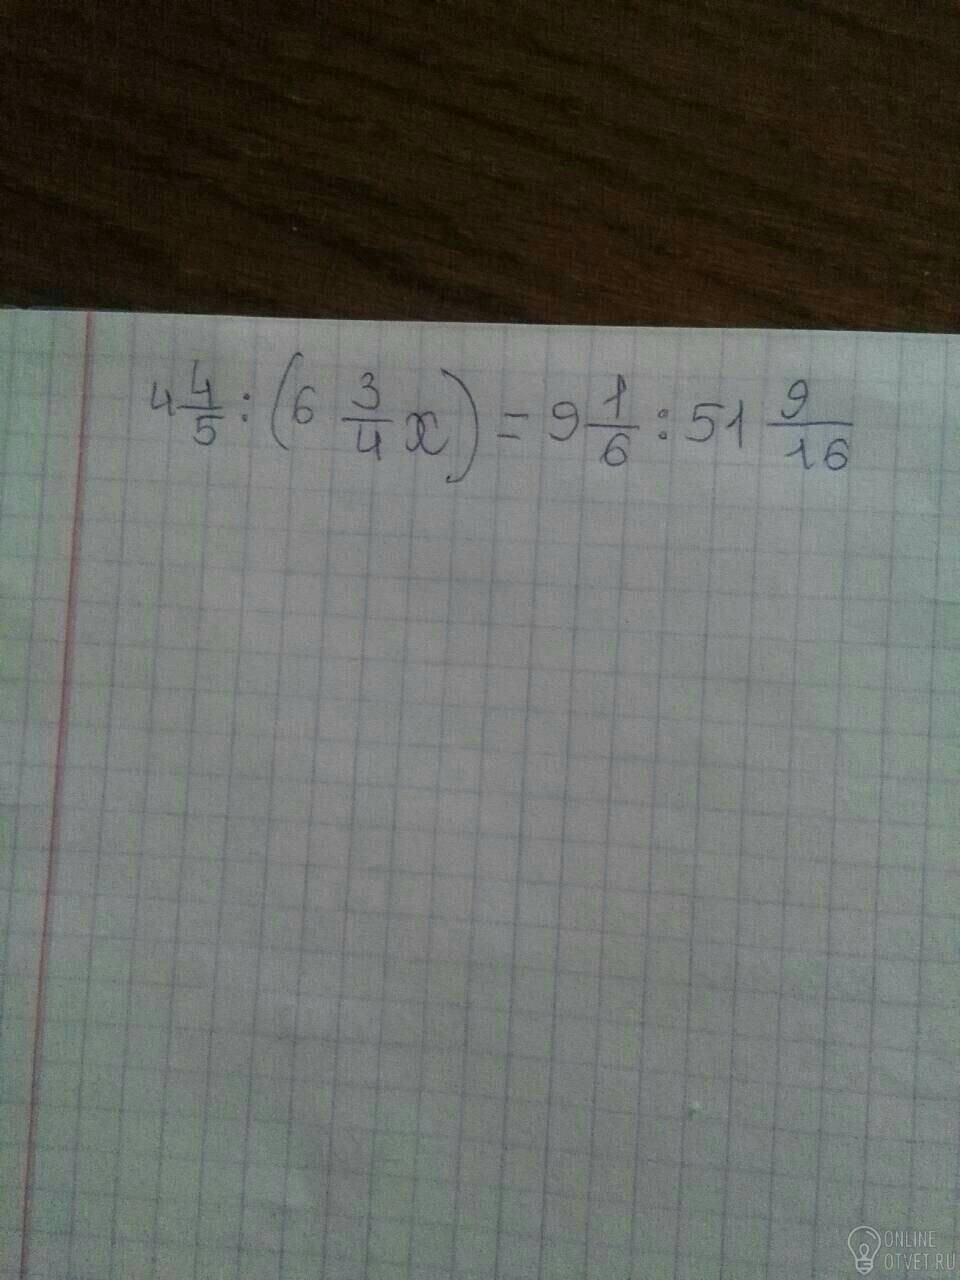 4 4/5 : (6 3/4 x) = 9 1/6 : 51 9/16
ONLINE
OTVET.RU